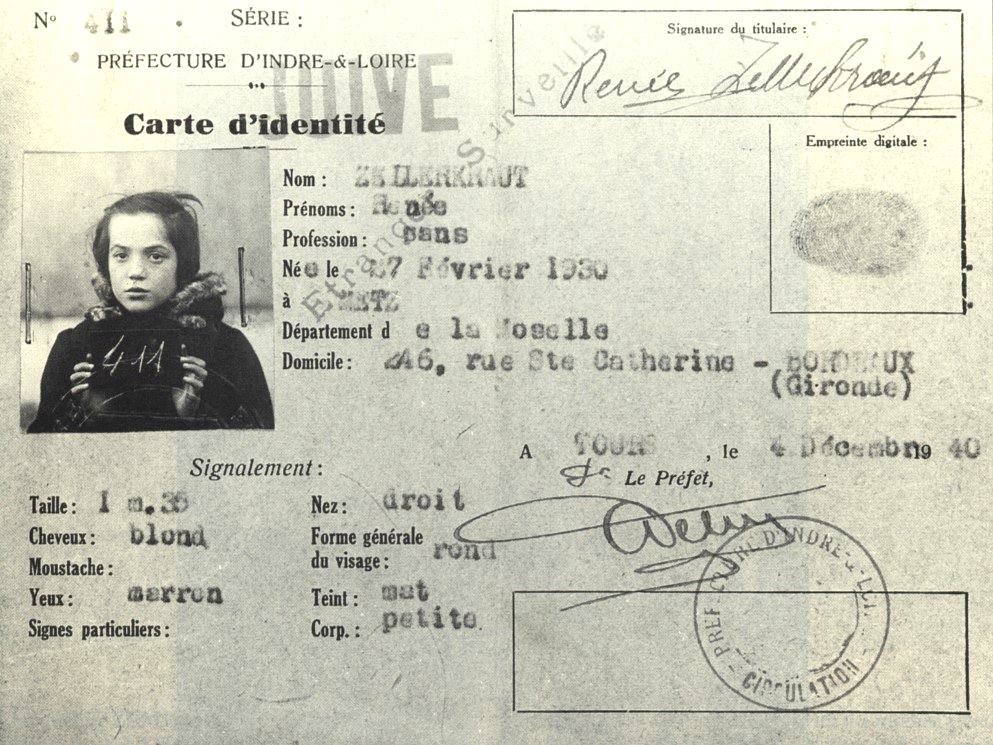 Nº 411 . SÉRIE :
PRÉFECTURE D'INDRE-&-LOIRE
JUIVE
Carte d'identité
Etranger Surveillé
Signature du titulaire :
Renée Zellerkraut
Empreinte digitale :
411
Nom : ZEILERKRAUT
Prénoms : Renée
Profession : sans
Née le 27 Février 1930
à METZ
Département d e la Moselle
Domicile : 246, rue Ste Catherine - BORDEAUX
(Gironde)
A TOURS , le 4 Décembre 19 40
Le Préfet,
Signalement :
Taille : 1 m.35
Cheveux : blond
Moustache :
Yeux : marron
Signes particuliers :
Nez : droit
Forme générale
du visage : rond
Teint : mat
Corp. : petite
PRÉFECTURE D'INDRE-&-LOIRE
CIRCULATION